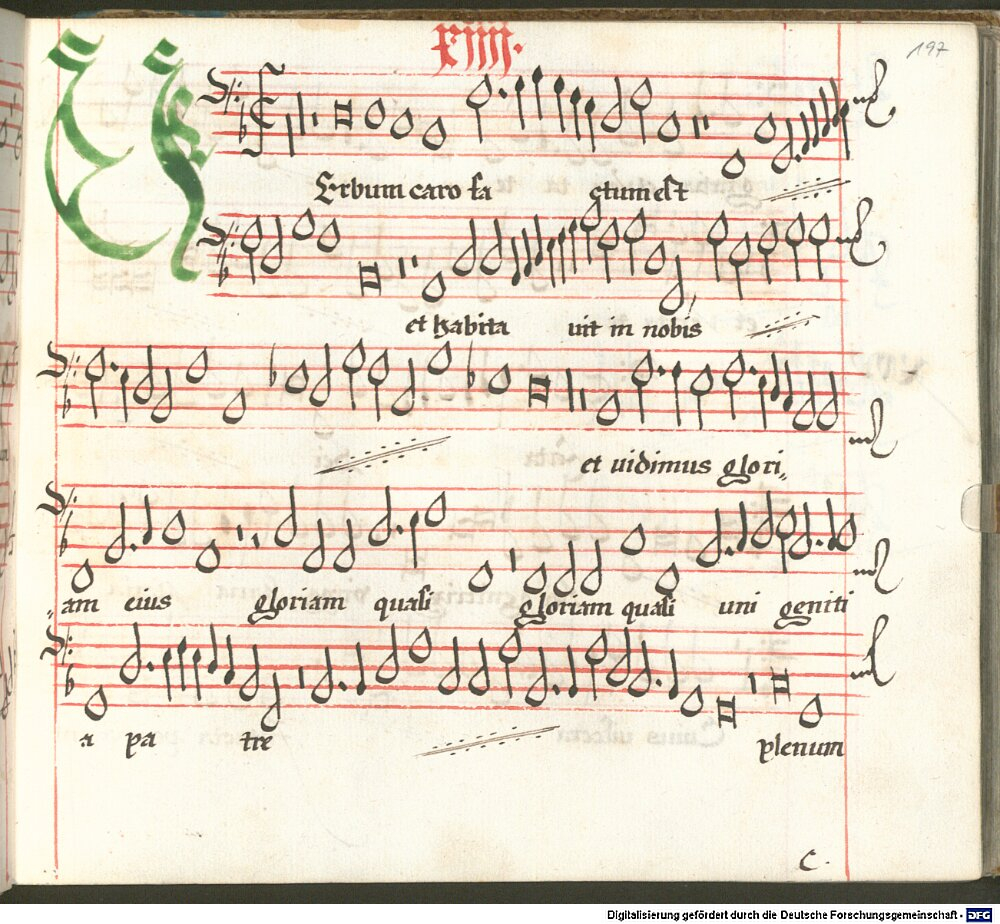 xiiij.
197
VErbum caro fa ctum est
et habita uit in nobis
et uidimus glori„
„am eius gloriam quasi gloriam quasi uni geniti
a pa tre plenum
C.
Digitalisierung gefördert durch die Deutsche Forschungsgemeinschaft - DFG